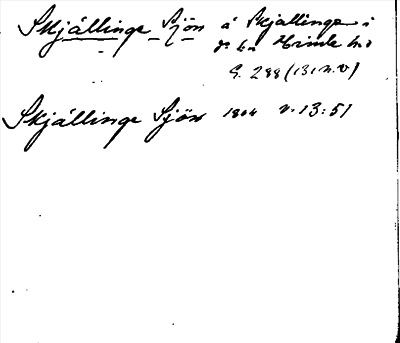 Skjällinge Sjön å Skjallinge i
Himle hd
S. 288 (131 n.v)
Skjällinge Sjön 1804 v. 13:51